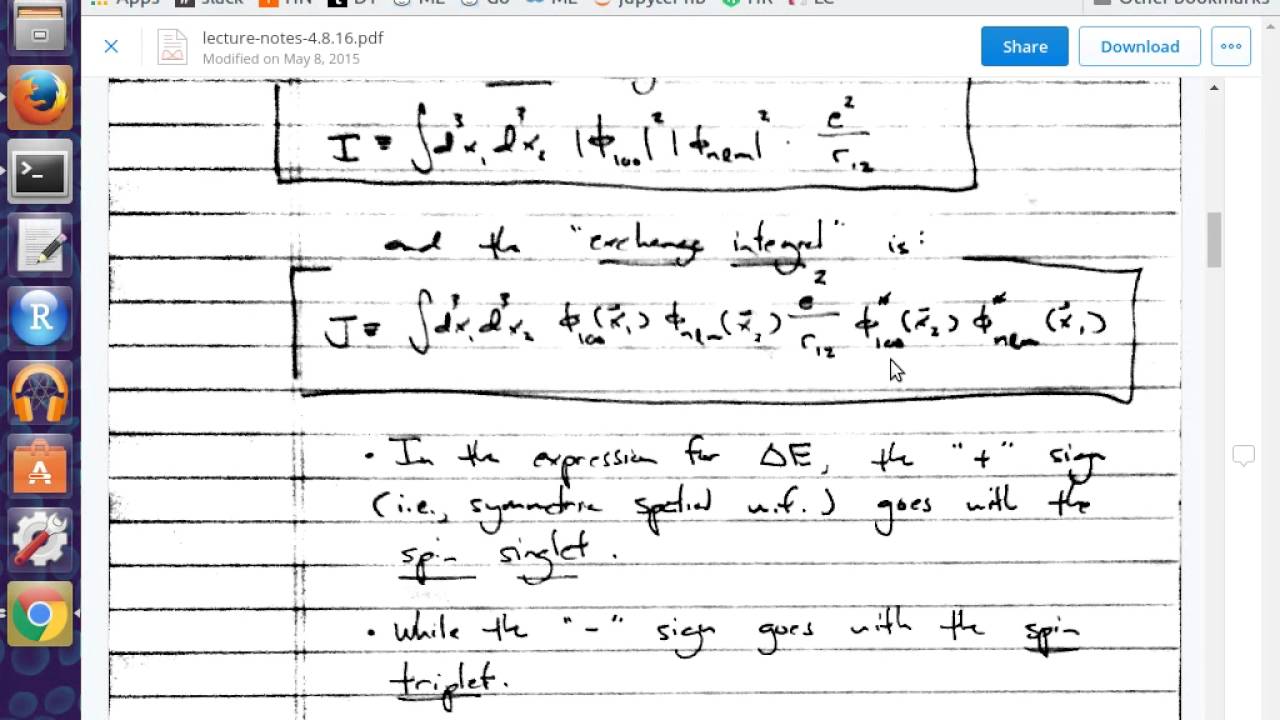 Apps slack HN DT ME Go ME jupyter nb HR LC Other Bookmarks
lecture-notes-4.8.16.pdf
Modified on May 8, 2015
Share
Download
I = ∫d³x₁ d³x₂ |ϕ₁₀₀|² |ϕₙₑₘ|² · e²/r₁₂
and the "exchange integral" is:
J = ∫d³x₁ d³x₂ ϕ₁₀₀(x⃗₁) ϕₙₑₘ(x⃗₂) e²/r₁₂ ϕ*₁₀₀(x⃗₂) ϕ*ₙₑₘ(x⃗₁)
• In the expression for ΔE, the "+" sign
(i.e., symmetric spatial w.f.) goes with the
spin singlet.
• While the "-" sign goes with the spin
triplet.